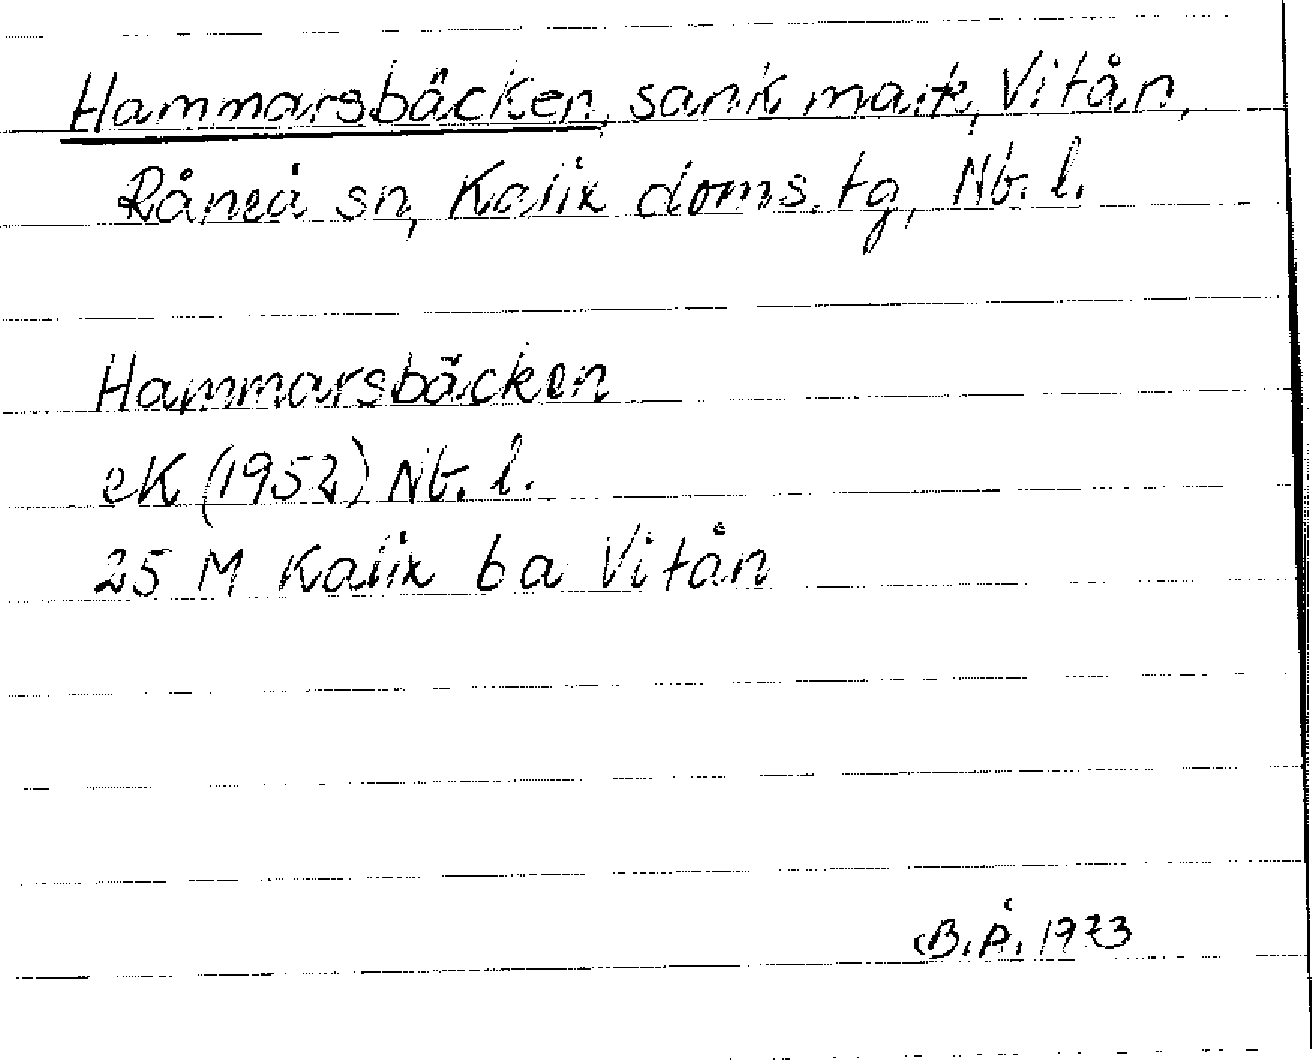 Hammarsbäcken, sank mark, Vitån,
Råneå sn, Kalix doms.tg, Nb. l.
Hammarsbäcken
eK (1952) Nb. l.
25 M Kalix ba Vitån
B.Å. 1973